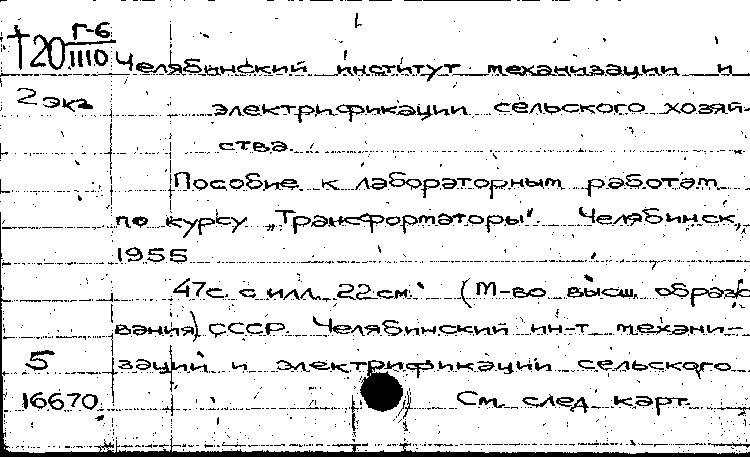 †20 Г-6
1110
Челябинский институт механизации и
2 экз электрификации сельского хозяй-
ства.
Пособие к лабораторным работам
по курсу „Трансформаторы". Челябинск,
1955
47с. с илл. 22 см. (М-во высш. образо
вания) СССР. Челябинский ин-т механи-
5 зации и электрификации сельского
16670 См. след карт.